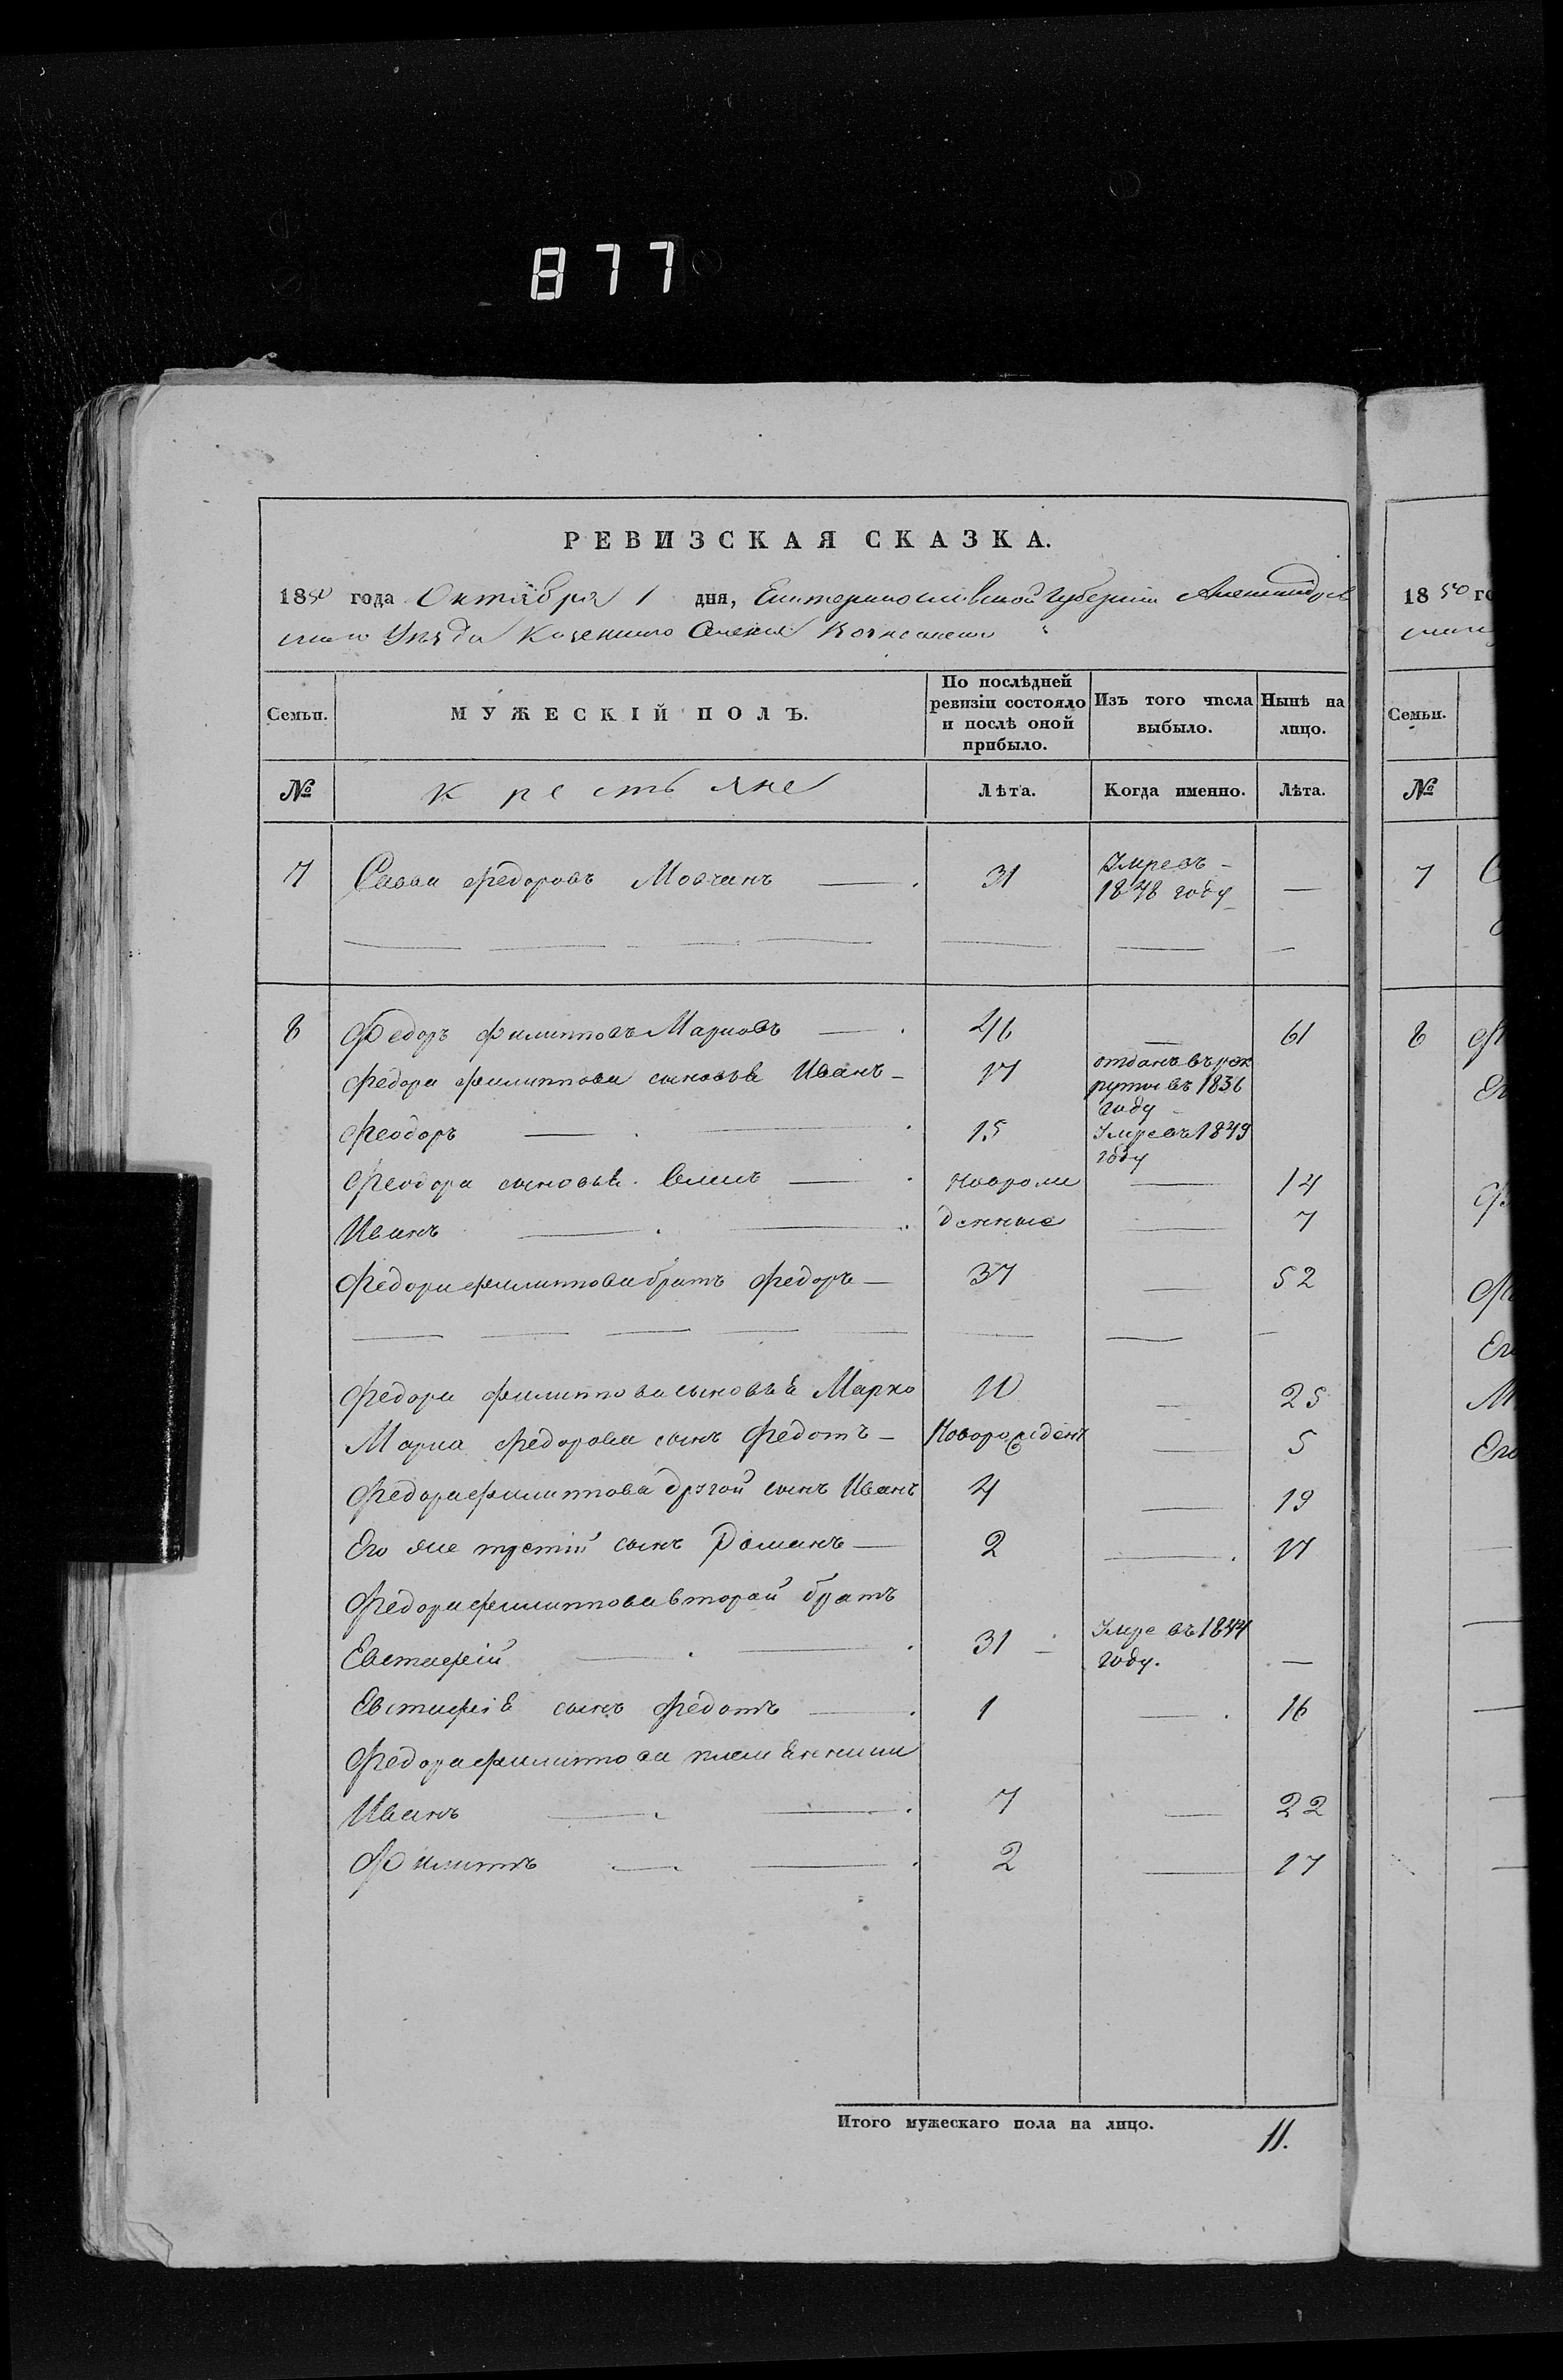 877
РЕВИЗСКАЯ СКАЗКА.
1850 года Октября 1 дня, Екатеринославской Губернии Александров
скаго Уезда Казеннаго Селения
Семьи. МУЖЕСКІЙ ПОЛЪ. По послѣдней ревизіи состояло и послѣ оной прибыло. Изъ того числа выбыло. Нынѣ на лицо.
№ крестьяне Лѣта. Когда именно. Лѣта.
7 Савва Федоровъ Мовчанъ 31 Умре въ 1848 году —
8 Федоръ Филипповъ Марковъ 46 — 61
Федора Филиппова сыновья Иванъ 17 отданъ въ рек руты въ 1836 году
Феодоръ 15 Умре въ 1849 году
Феодора сыновья Новорож — 14
Иванъ денные — 7
Федора Филиппова братъ Федоръ 37 — 52
Федора Филиппова сыновья Марко 10 — 25
Марка Федорова сынъ Федотъ Новорожденъ — 5
Федора Филиппова другой сынъ Иванъ 4 — 19
Его же третій сынъ Романъ 2 — 17
Федора Филиппова второй братъ
Евстафій 31 Умре въ 1844 году. —
Евстафія сынъ Федотъ 1 — 16
Федора Филиппова племянники
Иванъ 7 — 22
Филиппъ 2 — 17
Итого мужескаго пола на лицо. 11.
1850 го
Семьи.
№
7
8